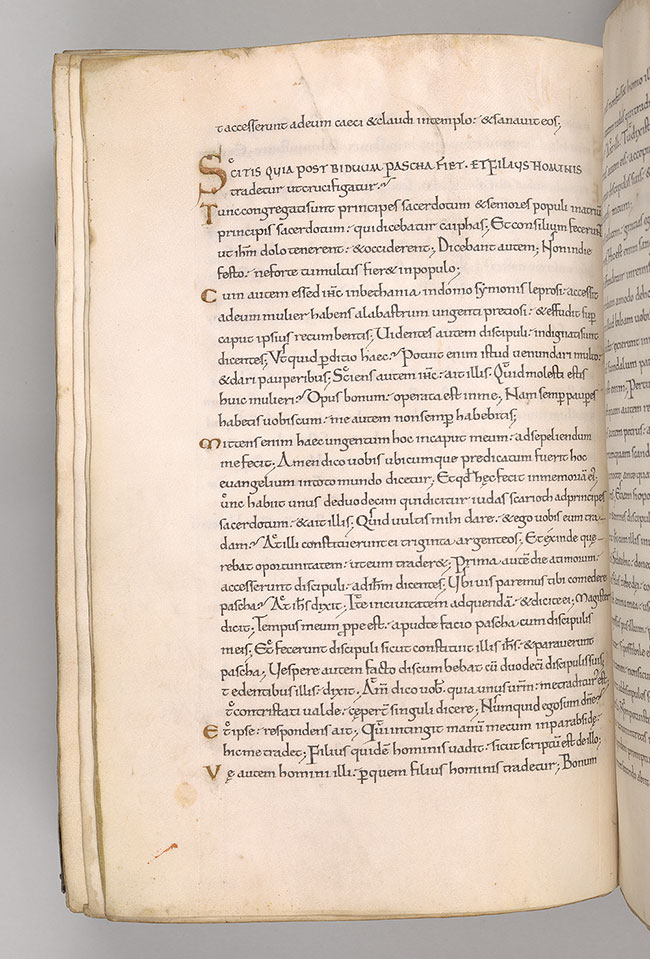 t accesserunt ad eum caeci & claudi in templo & sanavit eos;
SCITIS QUIA POST BIDUUM PASCHA FIET. ET FILIUS HOMINIS
tradetur ut crucifigatur.
Tunc congregati sunt principes sacerdotum & seniores populi in atriū
principis sacerdotum qui dicebatur caiphas; Et consilium fecerunt
ut ihm dolo tenerent & occiderent; Dicebant autem; Non in die
festo ne forte tumultus fier& in populo;
Cum autem ess& ihc in bethania in domo symonis leprosi accessit
ad eum mulier habens alabastrum ungenti preciosi & effudit sup
caput ipsius recumbentis; Videntes autem discipuli indignati sunt
dicentes; Ut quid pditio haec. Potuit enim istud venundari multo
& dari pauperibus; Sciens autem ihc ait illis. Quid molesti estis
huic mulieri. Opus bonum operata est in me; Nam semp pauperes
habetis vobiscum me autem non semp habebitis;
Mittens enim haec ungentum hoc in caput meum ad sepeliendum
me fecit; Amen dico vobis ubicumque predicatum fuerit hoc
evangelium in toto mundo dicetur; Et qđ hęc fecit in memoriā ei;
unc habiit unus de duodecim qui dicitur iudas scarioth ad principes
sacerdotum & ait illis; Quid vultis mihi dare & ego vobis eum tra
dam. At illi constituerunt ei triginta argenteos; Et exinde que
rebat oportunitatem ut eum trader&; Prima autē die azimorum
accesserunt discipuli ad ihm dicentes; Ubi vis paremus tibi comedere
pascha. At ihs dixit; Ite in civitatem ad quendā & dicite ei; Magister
dicit; Tempus meum ppe est apud te facio pascha cum discipulis
meis; Et fecerunt discipuli sicut constituit illis ihs & paraverunt
pascha; Vespere autem facto discumbebat cū duodecī discipulis suis;
t edentibus illis dixit. Am̄ dico vob. quia unus vrm̄ me traditurus est;
t contristati valde ceperunt singuli dicere; Numquid ego sum dn̄e
Et ipse respondens ait; Qui intingit manū mecum in parabside
hic me tradet; Filius quidē hominis vadit sicut scriptū est de illo;
Vę autem homini illi p quem filius hominis tradetur; Bonum